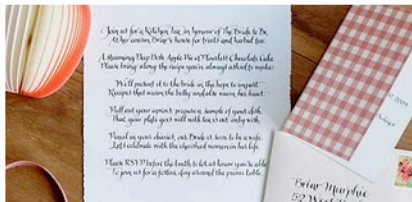 Join us for a Kitchen Tea in honour of The Bride to Be
At her cousin, Briar's house for fruits and herbal tea.
A steaming Deep Dish Apple Pie or Flourless Chocolate Cake
Please bring along the recipe you're always asked to make
We'll present it to the bride in the hope to impart
Recipes that warm the belly and also warm her heart.
Pull out your aprons, prepare a sample of your dish,
That your plate will with tea
our Bride is soon to be a wife.
Let's celebrate with the cherished women in her life.
Please RSVP before the tenth to let us know you're able
To join us for a festive day around the table
Briar Murphie
52 West